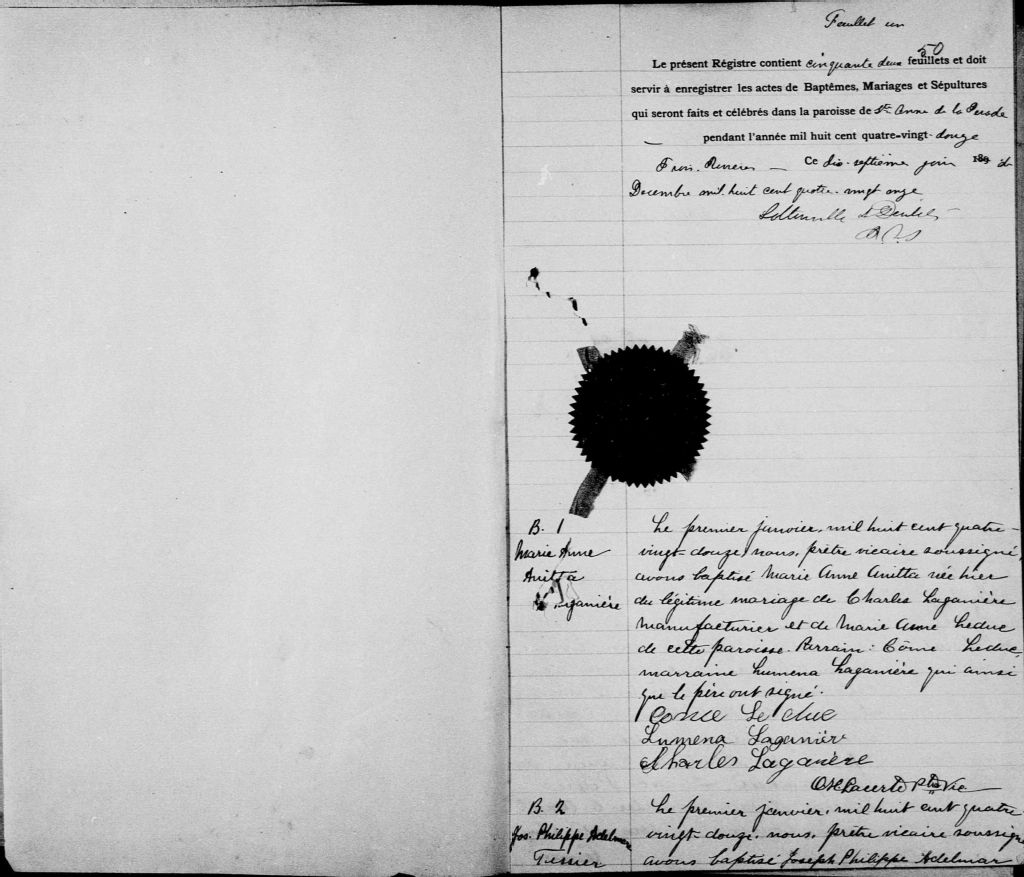 Feuillet un
50
Le présent Régistre contient cinquante deux feuillets et doit
servir à enregistrer les actes de Baptêmes, Mariages et Sépultures
qui seront faits et célébrés dans la paroisse de Ste Anne de la Perade
pendant l'année mil huit cent quatre-vingt-douze
Trois-Rivieres — Ce dix-septième jour 189 de
Decembre mil huit cent quatre-vingt onze
B. 1
Marie Anne
Anitta
Laganière
Le premier janvier, mil huit cent quatre-
vingt-douze, nous, prêtre vicaire soussigné,
avons baptisé Marie Anne Anitta née hier
du légitime mariage de Charles Laganière
manufacturier et de Marie Anne Leduc
de cette paroisse. Parrain: Côme Leduc,
marraine Lumena Laganière qui ainsi
que le père ont signé.
Come Le duc
Lumena Laganière
Charles Laganière
Ptre Vic
B. 2
Jos. Philippe Adelmar
Tessier
Le premier janvier, mil huit cent quatre
vingt-douze, nous, prêtre vicaire soussigné
avons baptisé Joseph Philippe Adelmar